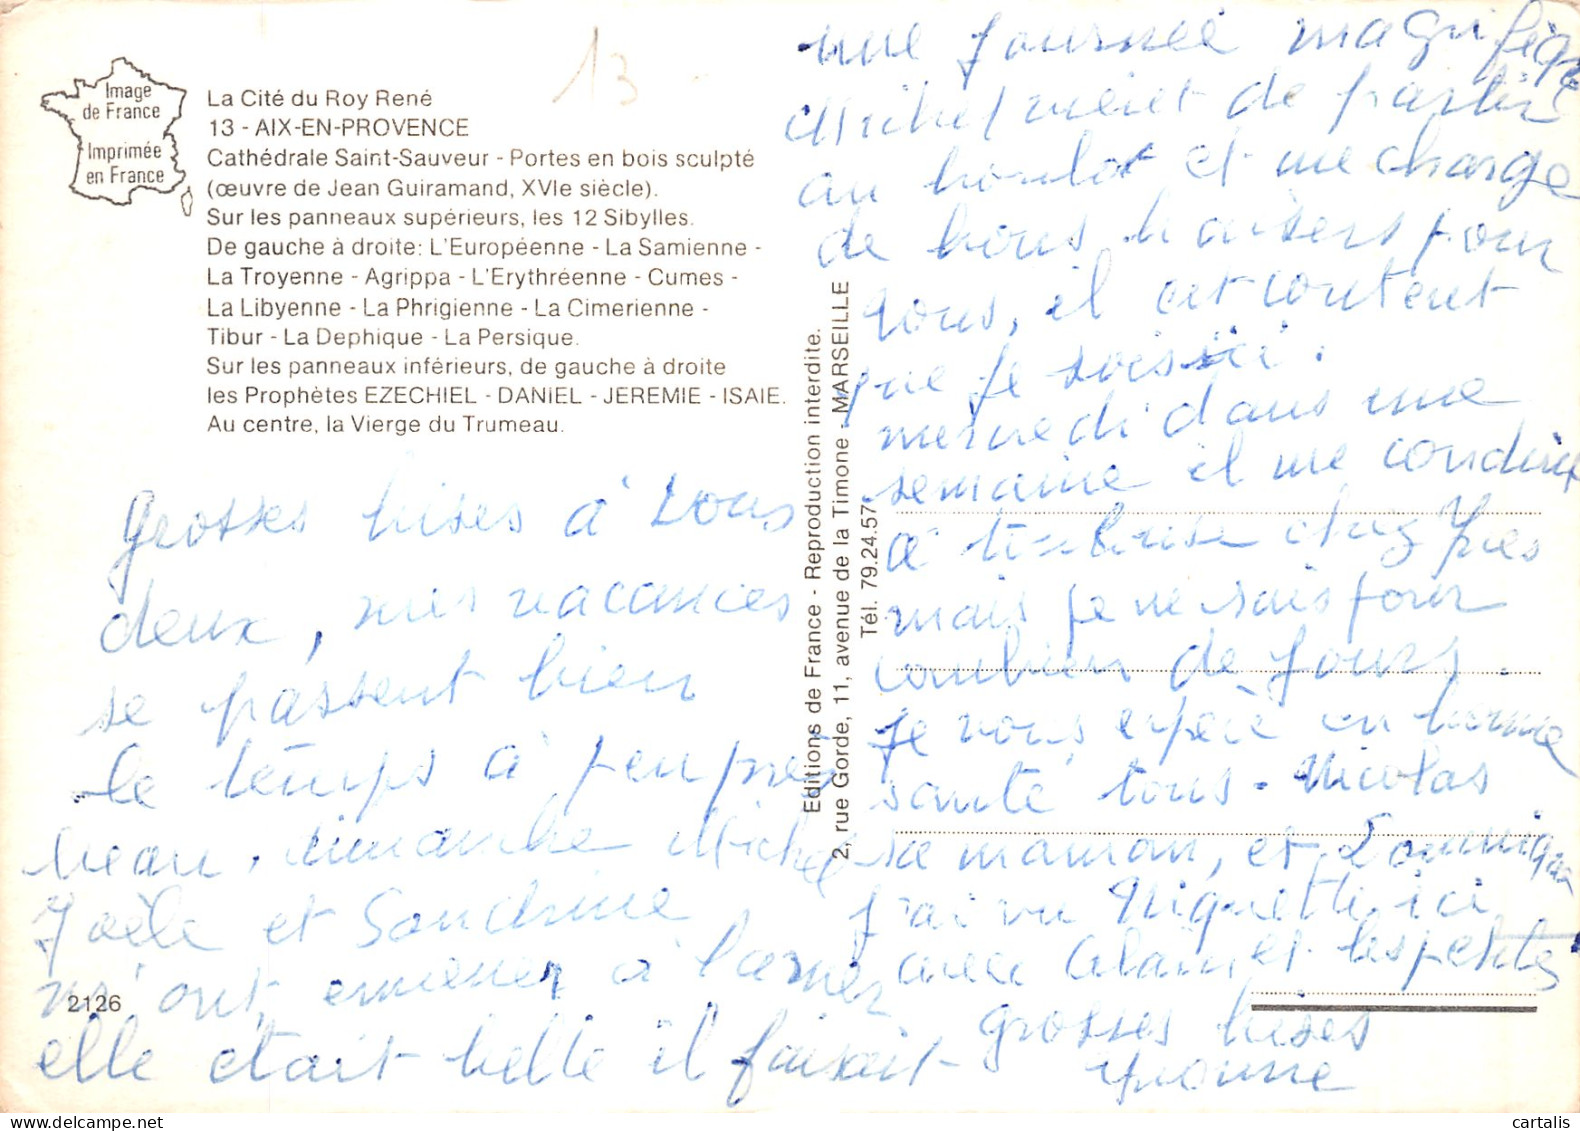 13
Image
de France
Imprimée
en France
La Cité du Roy René
13 - AIX-EN-PROVENCE
Cathédrale Saint-Sauveur - Portes en bois sculpté
(œuvre de Jean Guiramand, XVIe siècle).
Sur les panneaux supérieurs, les 12 Sibylles.
De gauche à droite: L'Européenne - La Samienne -
La Troyenne - Agrippa - L'Erythréenne - Cumes -
La Libyenne - La Phrigienne - La Cimerienne -
Tibur - La Dephique - La Persique.
Sur les panneaux inférieurs, de gauche à droite
les Prophètes EZECHIEL - DANIEL - JEREMIE - ISAIE.
Au centre, la Vierge du Trumeau.
Grosses bises à vous
deux, mes vacances
se passent bien
le temps à peu près
beau, dimanche Michel
Joële et Sandrine
m'ont emmener à la mer
elle était belle il faisait
2126
Editions de France - Reproduction interdite.
2, rue Gorde, 11, avenue de la Timone - MARSEILLE
Tél. 79.24.57
une journée magnifique
Michel vient de partir
au boulot et me charge
de bons baisers pour
vous, il est content
que je sois ici.
mercredi dans une
semaine il me conduira
à chez Yves
mais je ne sais pour
combien de jours.
Je vous espère en bonne
santé tous - Nicolas
sa maman, et Dominique
J'ai vu Huguette ici
avec Alain et les petites
grosses bises
Yvonne
cartalis